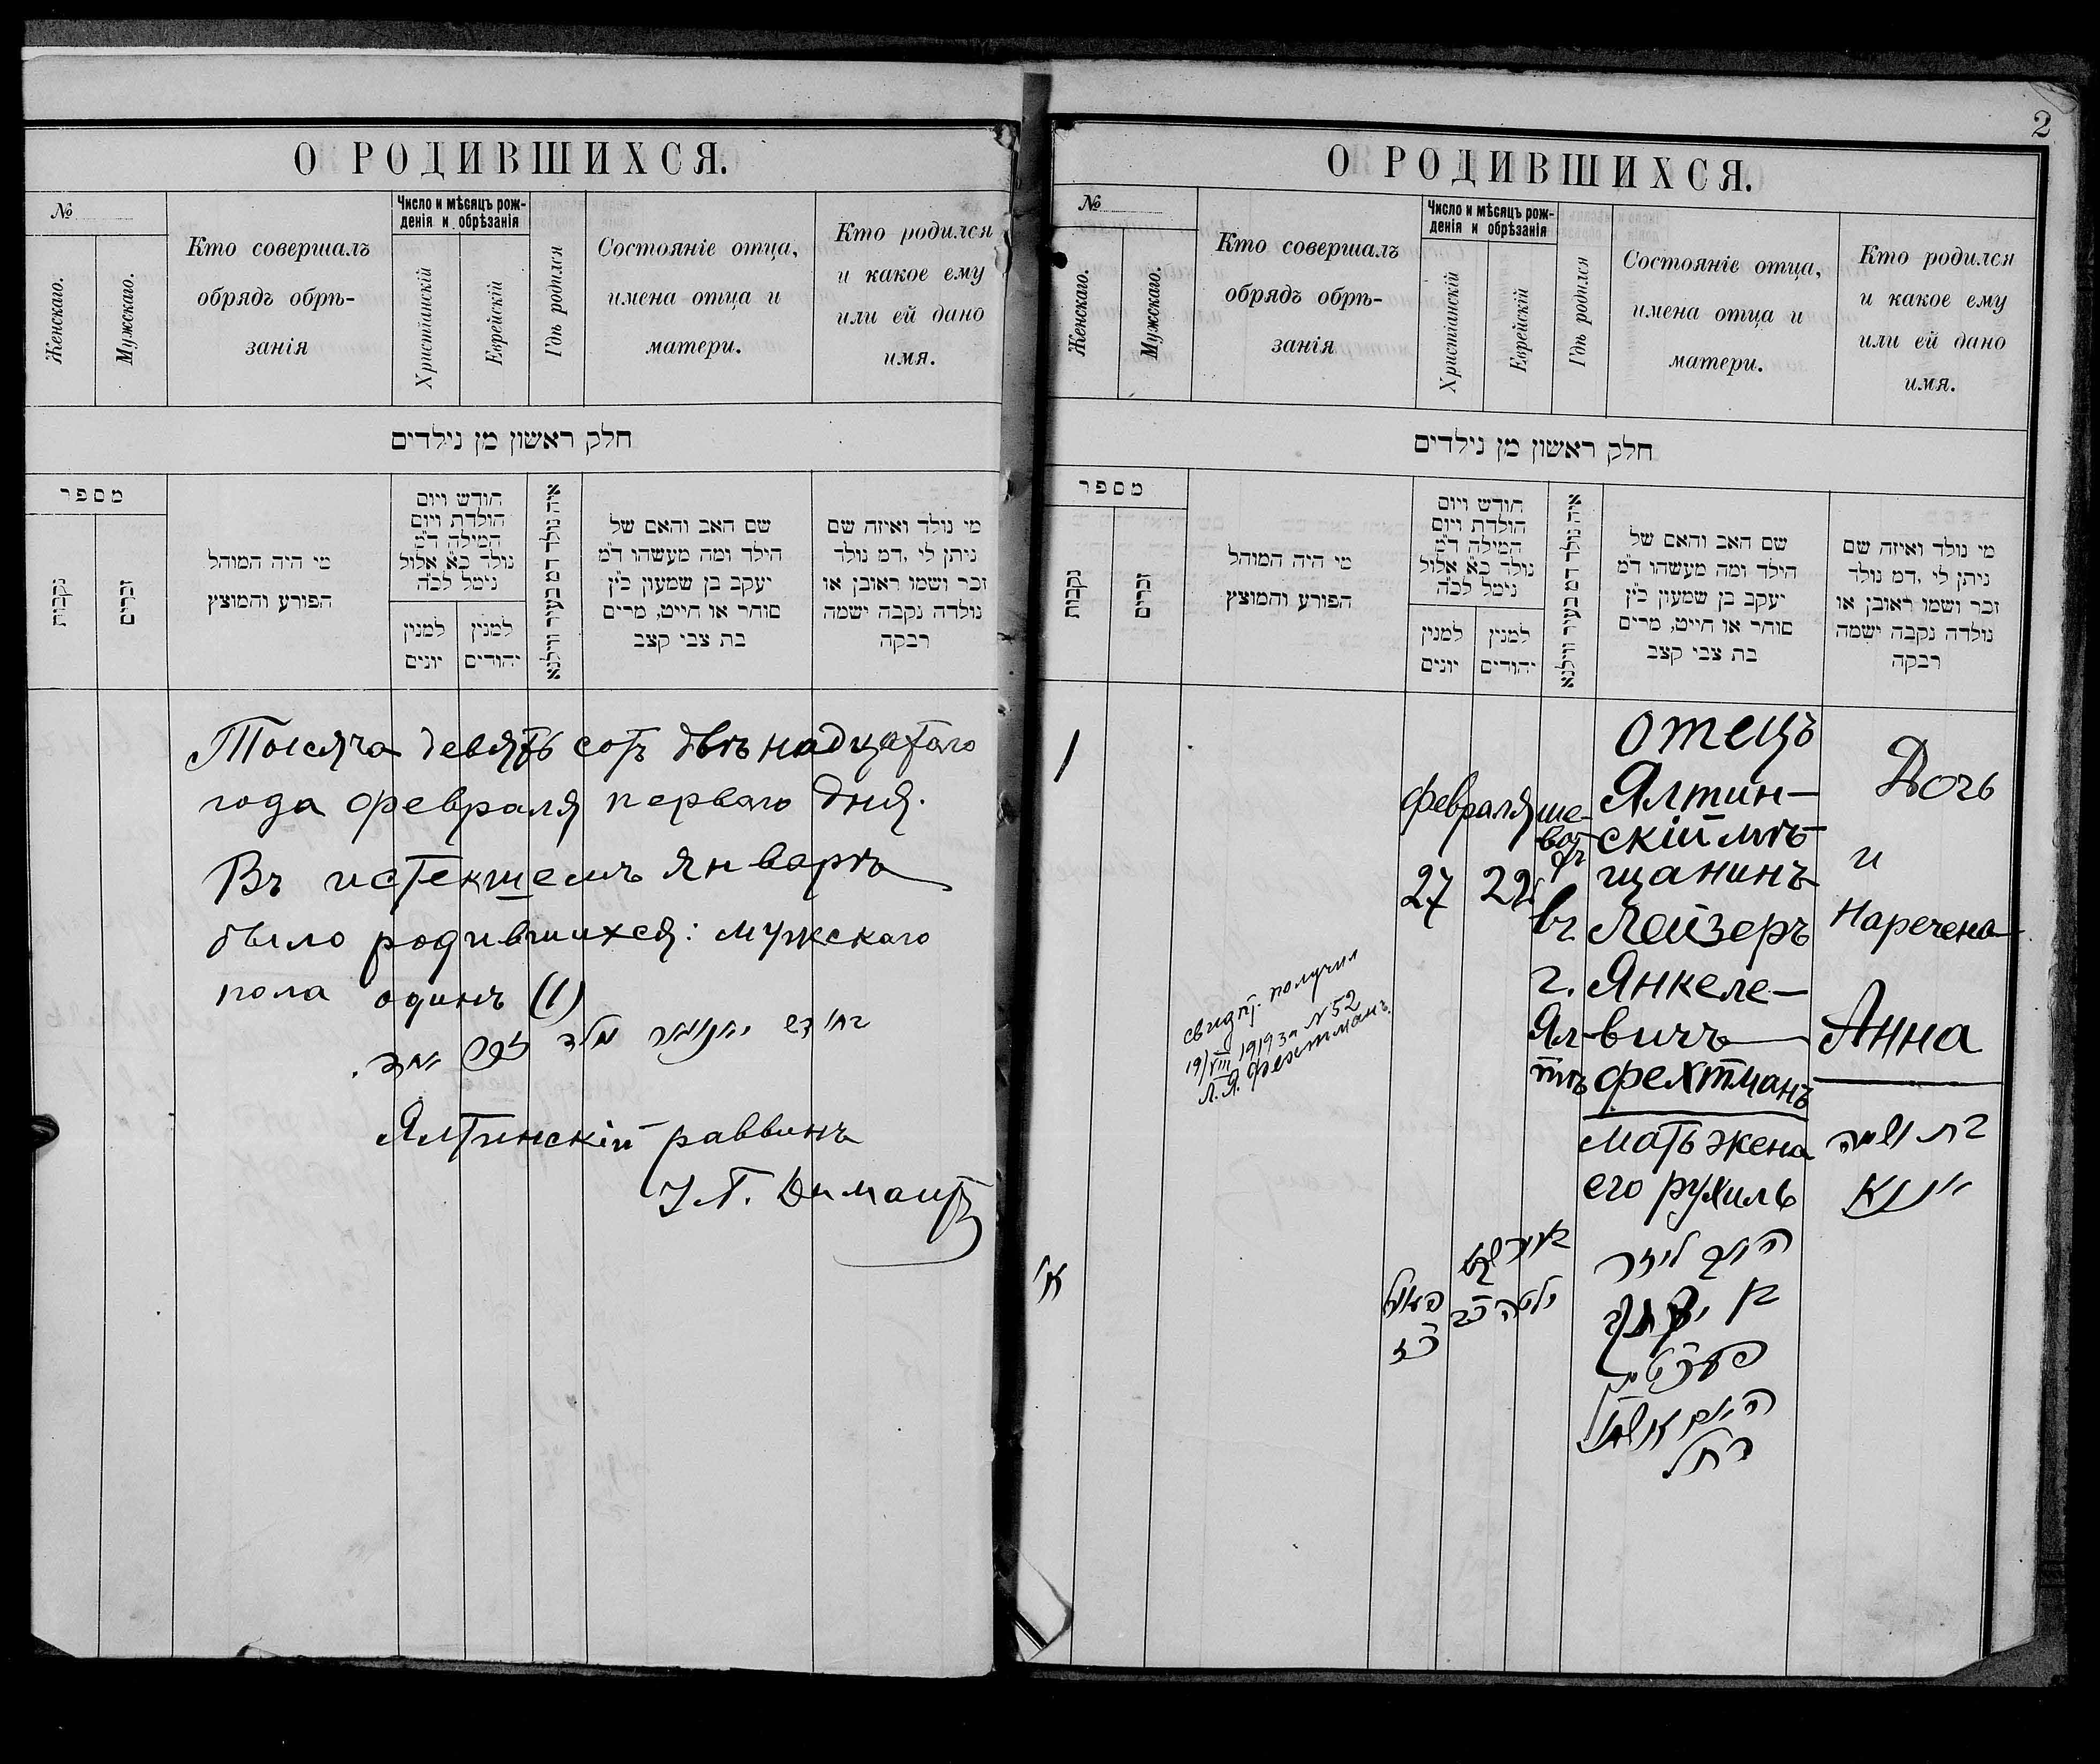 О РОДИВШИХСЯ.
№
Женскаго.
Мужскаго.
Кто совершалъ
обрядъ обрѣ-
занія
Число и мѣсяцъ рож-
денія и обрѣзанія
Христіанскій
Еврейскій
Гдѣ родился
Состояніе отца,
имена отца и
матери.
Кто родился
и какое ему
или ей дано
имя.
חלק ראשון מן נילדים
מספר
נקבות
זכרים
מי היה המוהל
הפורע והמוצץ
חודש ויום
הולדת ויום
המילה ד״מ
נולד כ״א אלול
נימל לכ״ה
למנין
יונים
למנין
יהודים
איה נולד דמ בעיר ווילנא
שם האב והאם של
הילד ומה מעשהו ד״מ
יעקב בן שמעון כ״ץ
סוחר או חייט, מרים
בת צבי קצב
מי נולד ואיזה שם
ניתן לי, דמ נולד
זכר ושמו ראובן או
נולדה נקבה ישמה
רבקה
Тысяча девять сотъ двѣнадцатаго
года февраля перваго дня.
Въ истекшемъ январѣ
было родившихся: мужскаго
пола одинъ (1)
Ялтинскій раввинъ
2
О РОДИВШИХСЯ.
№
Женскаго.
Мужскаго.
Кто совершалъ
обрядъ обрѣ-
занія
Число и мѣсяцъ рож-
денія и обрѣзанія
Христіанскій
Еврейскій
Гдѣ родился
Состояніе отца,
имена отца и
матери.
Кто родился
и какое ему
или ей дано
имя.
חלק ראשון מן נילדים
מספר
נקבות
זכרים
מי היה המוהל
הפורע והמוצץ
חודש ויום
הולדת ויום
המילה ד״מ
נולד כ״א אלול
נימל לכ״ה
למנין
יונים
למנין
יהודים
איה נולד דמ בעיר ווילנא
שם האב והאם של
הילד ומה מעשהו ד״מ
יעקב בן שמעון כ״ץ
סוחר או חייט, מרים
בת צבי קצב
מי נולד ואיזה שם
ניתן לי, דמ נולד
זכר ושמו ראובן או
נולדה נקבה ישמה
רבקה
1
свидѣт. получил
19/VIII 1919 за N 52
Л. Я. Фехтманъ.
февраля
27
ше-
ватъ
22
въ
г.
Ял-
тѣ
отецъ
Ялтин-
скій мѣ-
щанинъ
Лейзеръ
Янкеле-
вичъ
Фехтманъ
мать жена
его Рухиль
Дочь
и
Наречена
Анна
האב ליזר
בן יעקב
רחל